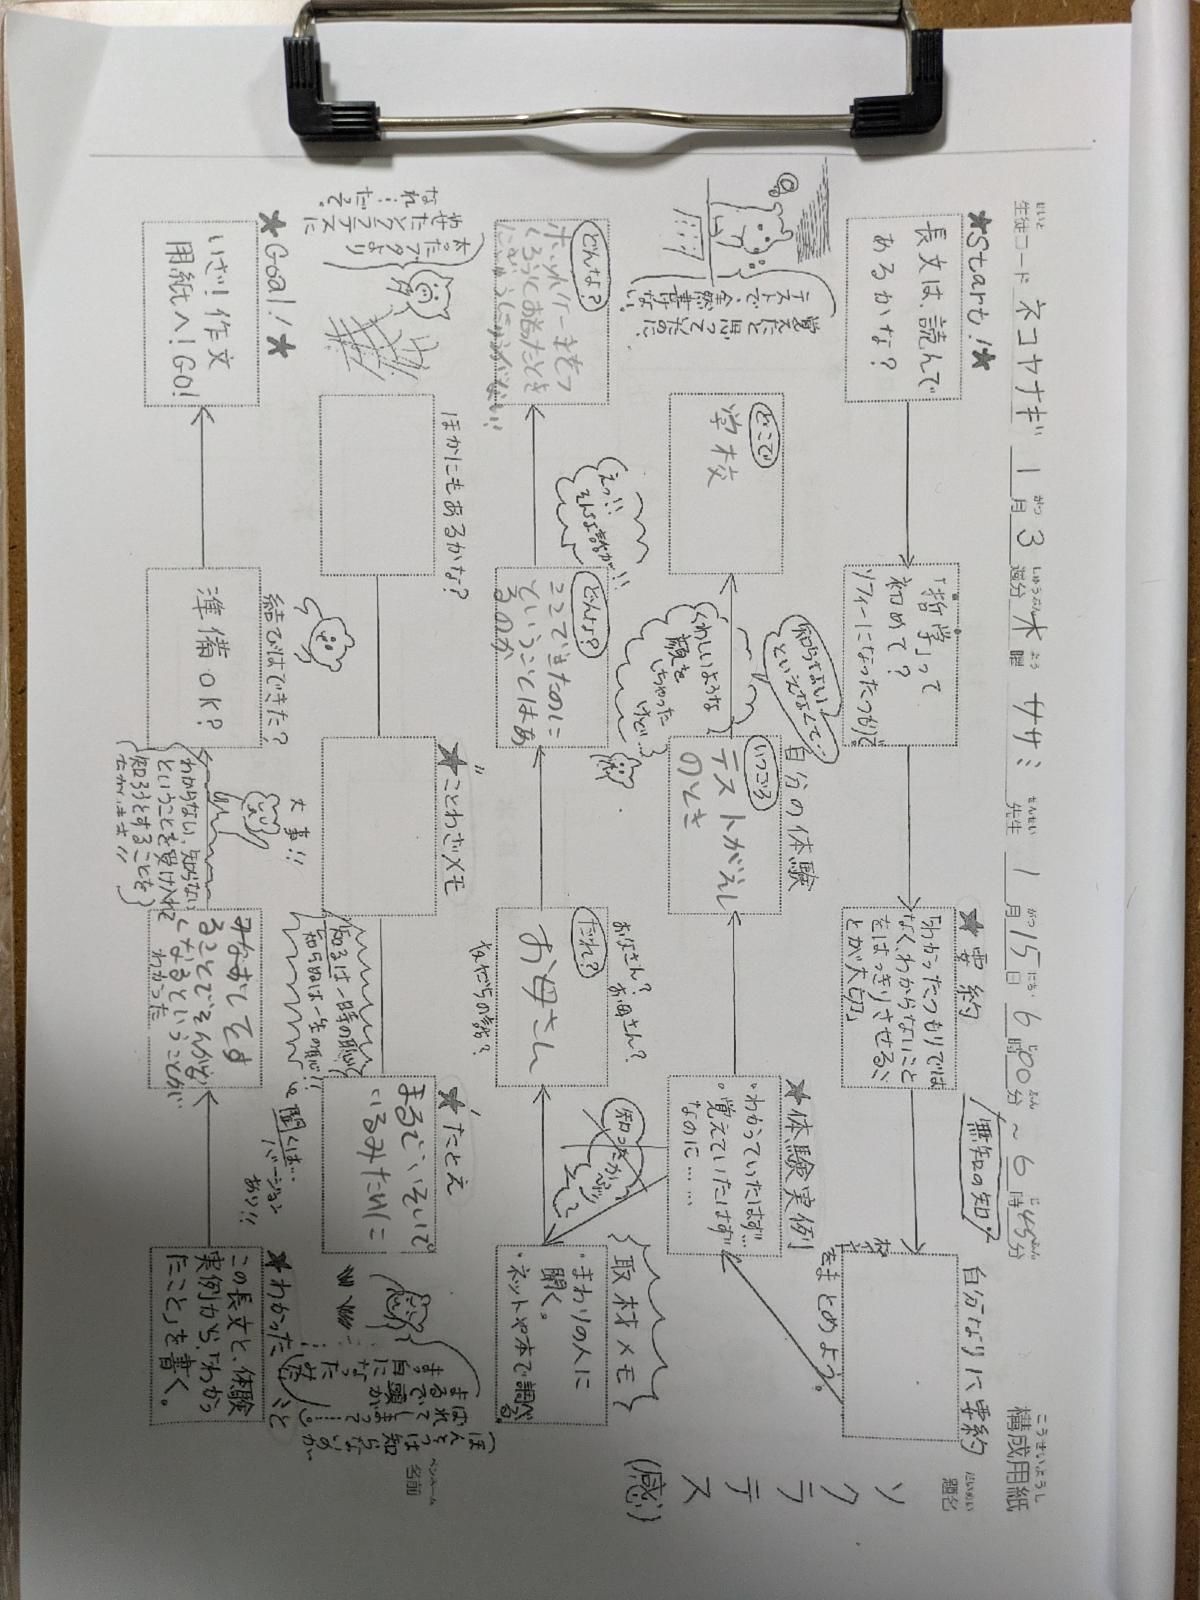 こうせいようし
構成用紙
せいと
生徒コード ネコヤナギ 1月3週分 木曜 ササミ先生 1月15日6時00分～6時45分
だいめい
題名
ソクラテス
(感)
ペンネーム
名前
★Start!★
長文は、読んで
あるかな？
「哲学」って
初めて？
ソフィーになったつもりで
★要約
「わかったつもりでは
なく、わからないこと
をはっきりさせるこ
とが大切」
"無知の知"
自分なりに要約
をまとめよう。
★体験実例
・わかっていたはず…
覚えていたはず
なのに……
自分の体験
いつごろ
テストがえし
のとき
どこで
学校
覚えたと思ってたのに、
テストで全然書けない。
知らないよ
といえなくて…
くわしいような
顔を
しちゃった
けど…
取材メモ
・まわりの人に
聞く。
・ネットや本で調べる。
知ったかぶり
だれ？
お母さん
お父さん？お母さん？
友だちの話？
どんな？
ここできたのに
ということはあ
るのか
えっ!!
そんな話が…!!
どんな？
ホットケーキをつ
くろうとおもったとき
★たとえ
まるで、、そいで
いるみたいに
ほんとうは知らないのが
ばれてしまって…
まるで頭が
まっ白になった
★ことわざメモ
聞くは…
バージョン
あり!!
知らぬは一生の恥!!
ほかにもあるかな？
★わかったこと
この長文と、体験
実例から、「わかっ
たこと」を書く。
みなおしてす
ることでそんが
なくなるということが
わかった
大事!!
わからない、知らない
ということを受け入れて
知ろうとすることを
結びはできた？
準備OK？
★Goal!★
いざ！作文
用紙へ！GO!